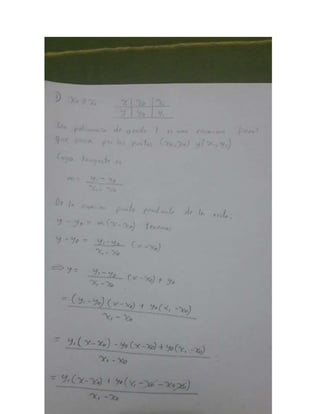 1) x₀ ≠ x₁
x | x₀ | x₁
y | y₀ | y₁
Un polinomio de grado 1 es una ecuacion lineal
que pasa por los puntos (x₀,y₀) y (x₁,y₁)
Cuya es
m = y₁-y₀ / x₁-x₀
De la ecuacion punto pendiente de la recta:
y - y₀ = m(x-x₀) tenemos
y - y₀ = y₁-y₀ / x₁-x₀ (x-x₀)
⇒ y = y₁-y₀ / x₁-x₀ (x-x₀) + y₀
= (y₁-y₀)(x-x₀) + y₀(x₁-x₀) / x₁-x₀
= y₁(x-x₀) - y₀(x-x₀) + y₀(x₁-x₀) / x₁-x₀
= y₁(x-x₀) + y₀(x₁-x₀ / x₁-x₀